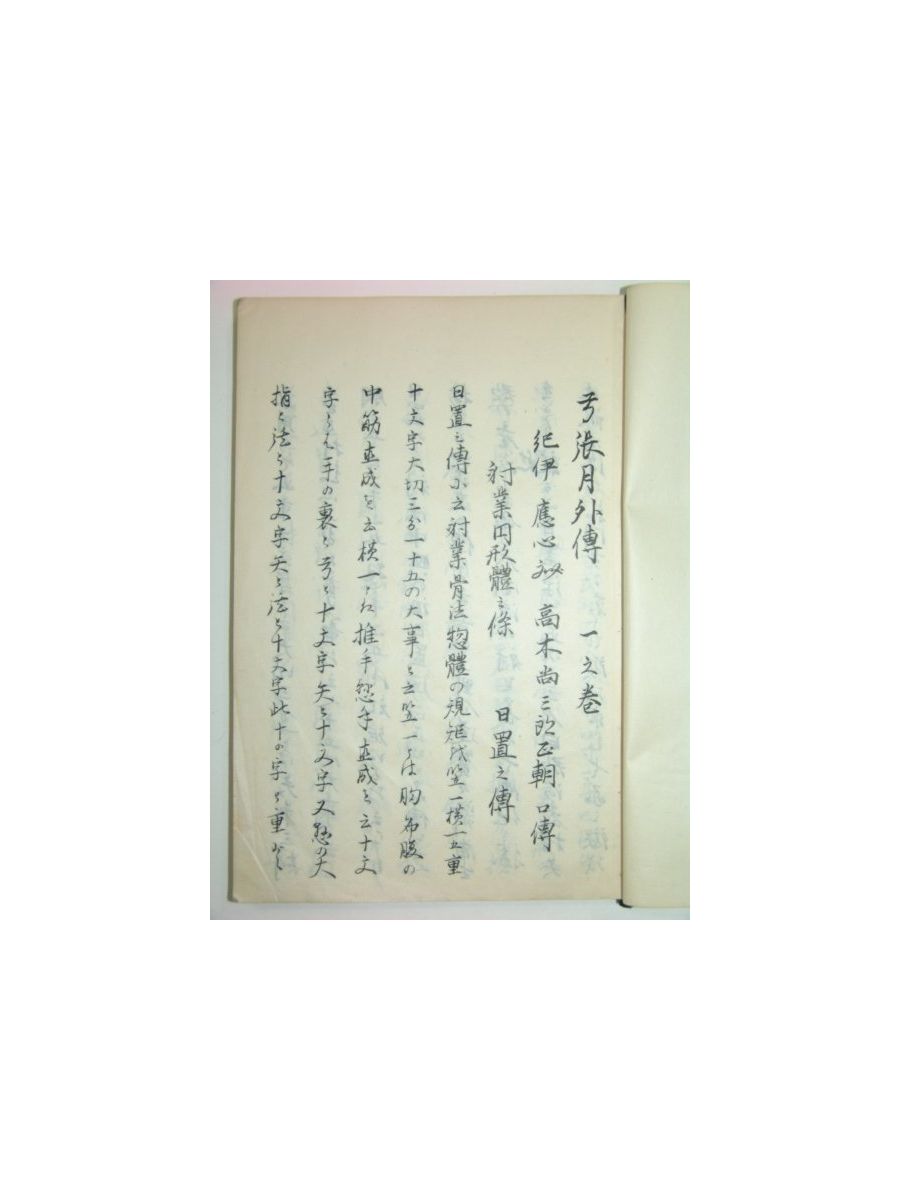 弓張月外傳 一之巻
紀伊 應心 高木尚三郎正朝 口傳
射業円形體之條 日置之傳
日置之傳小云射業骨法惣體の規矩竪一横一五重
十文字大切三分一十五の大事と云竪一とは胸
中筋直成を云横一とハ推手懸手直成を云十文
字とは手の裏と弓と十文字矢と十文字又懸の大
指と法と十文字矢と法と十文字此十の字を重